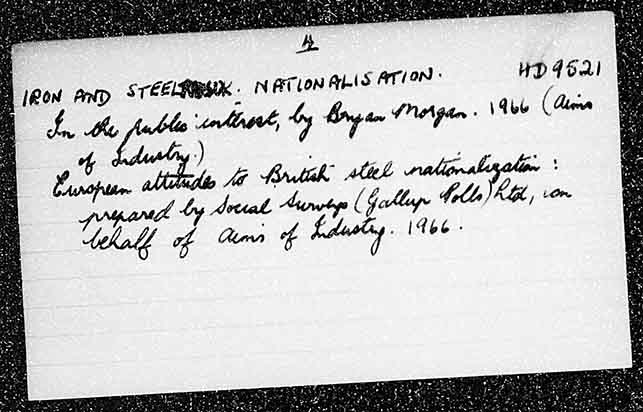 4
IRON AND STEEL. NATIONALISATION. HD9521
In the public interest, by Bryan Morgan. 1966 (Aims
of Industry.)
European attitudes to British steel nationalization:
prepared by Social Surveys (Gallup Polls) Ltd, on
behalf of Aims of Industry. 1966.